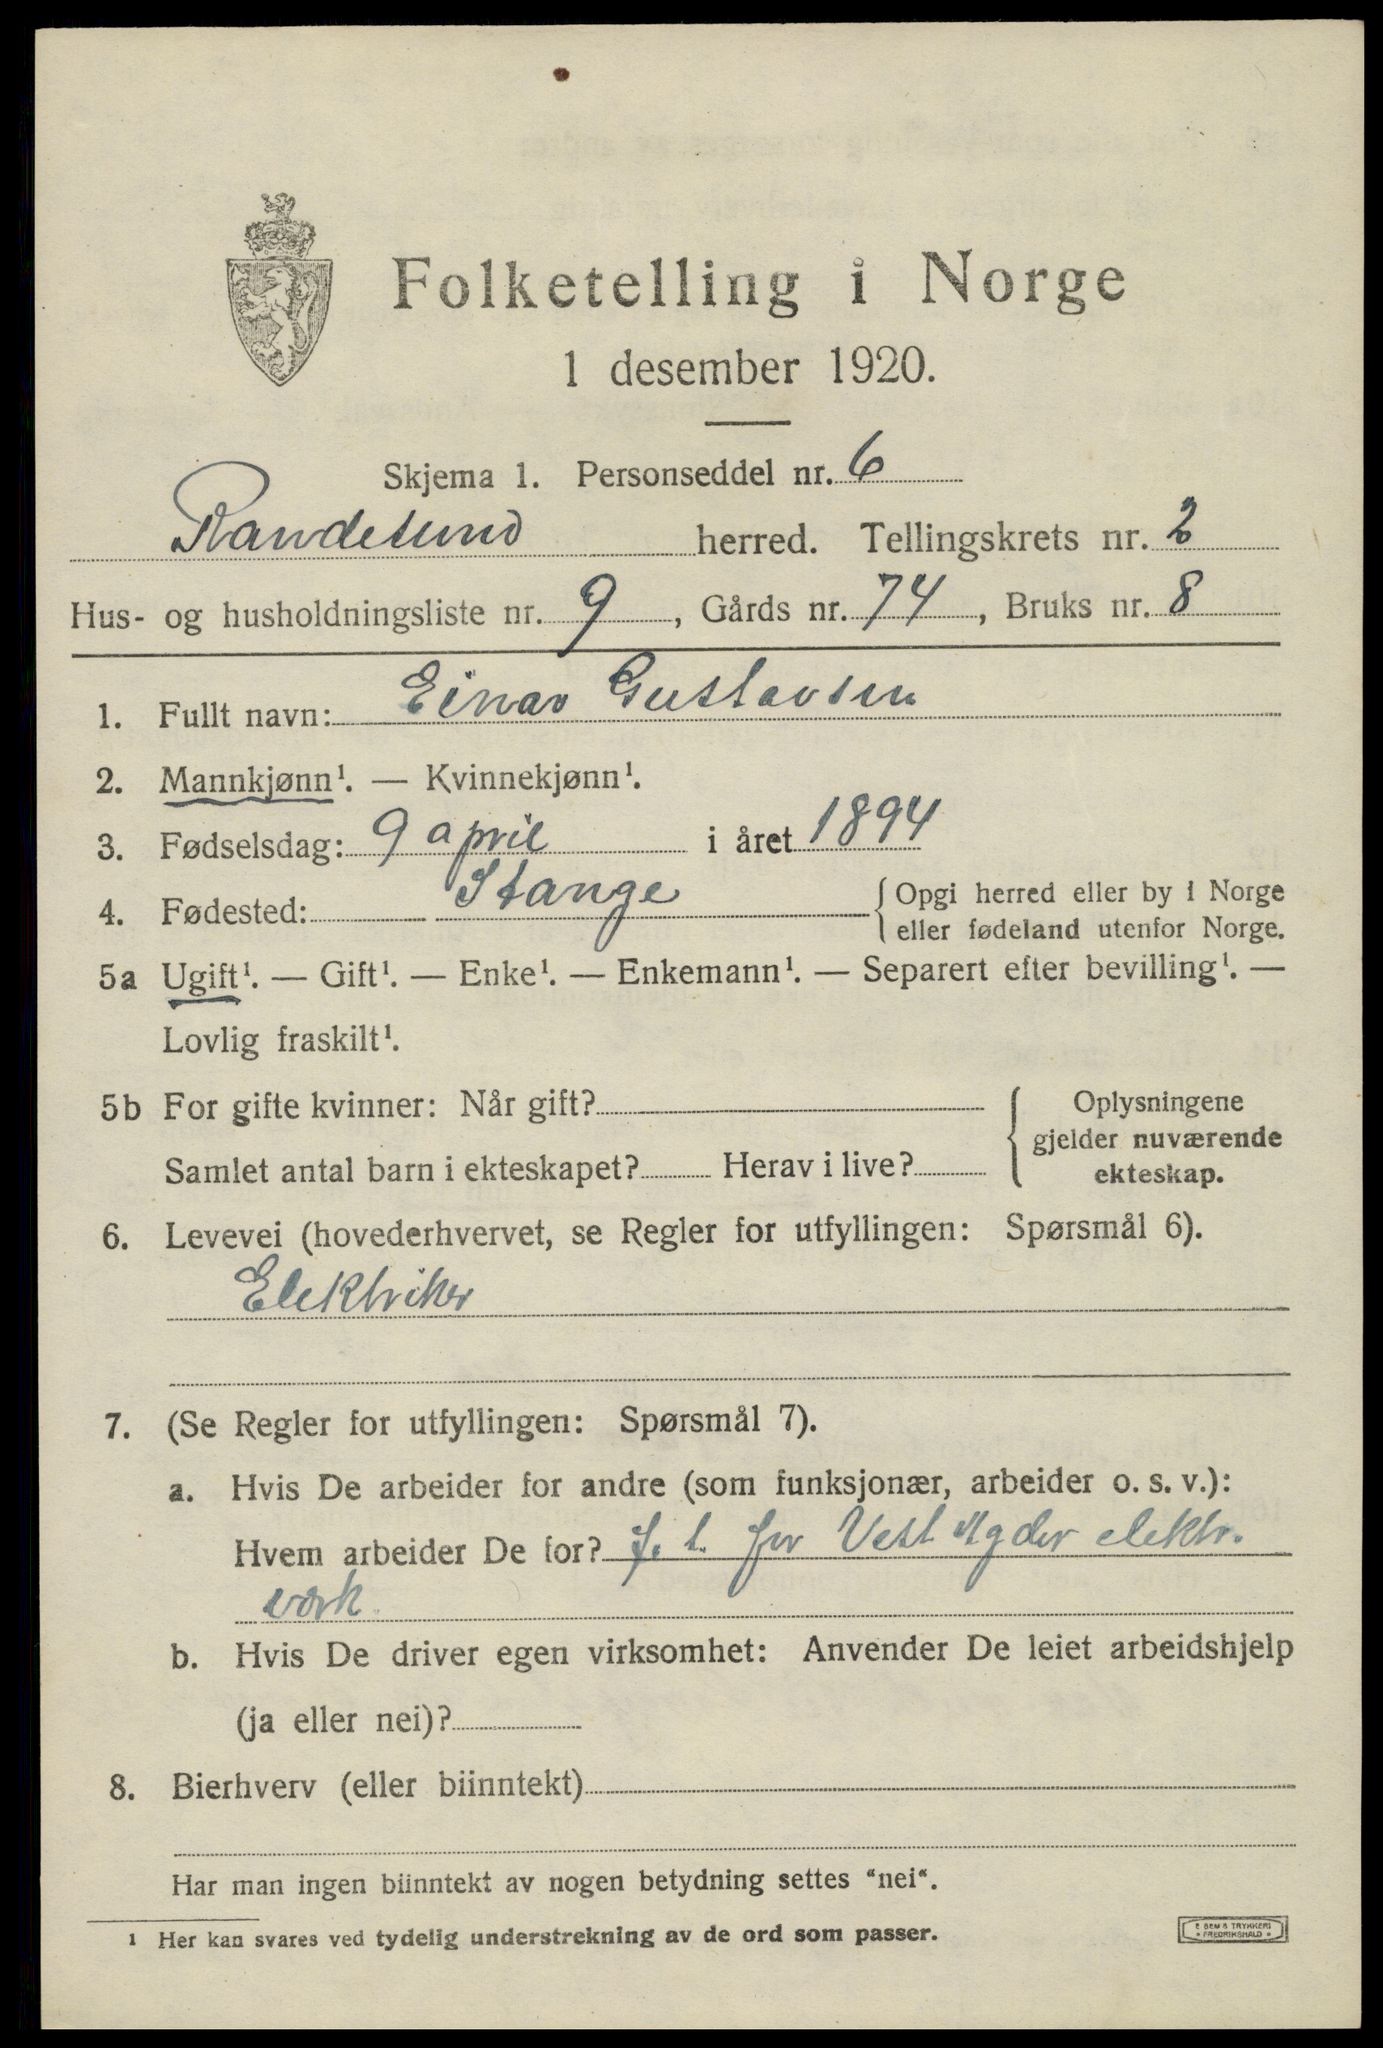 Folketelling i Norge
1 desember 1920.
Skjema 1. Personseddel nr. 6
Randesund herred. Tellingskrets nr. 2
Hus- og husholdningsliste nr. 9, Gårds nr. 74, Bruks nr. 8
1. Fullt navn: Einar Gustavsen
2. Mannkjønn¹. — Kvinnekjønn¹.
3. Fødselsdag: 9 april i året 1894
4. Fødested: Stange { Opgi herred eller by i Norge
eller fødeland utenfor Norge.
5a Ugift¹. — Gift¹. — Enke¹. — Enkemann¹. — Separert efter bevilling¹. —
Lovlig fraskilt¹.
5b For gifte kvinner: Når gift? { Oplysningene
gjelder nuværende
Samlet antal barn i ekteskapet? Herav i live?
ekteskap.
6. Levevei (hovederhvervet, se Regler for utfyllingen: Spørsmål 6).
Elektriker
7. (Se Regler for utfyllingen: Spørsmål 7).
a. Hvis De arbeider for andre (som funksjonær, arbeider o. s. v.):
Hvem arbeider De for? f. t. for Vest Agder elektr.
værk.
b. Hvis De driver egen virksomhet: Anvender De leiet arbeidshjelp
(ja eller nei)?
8. Bierhverv (eller biinntekt)
Har man ingen biinntekt av nogen betydning settes "nei".
¹ Her kan svares ved tydelig understrekning av de ord som passer.
E SEM'S TRYKKERI
* FREDRIKSHALD *